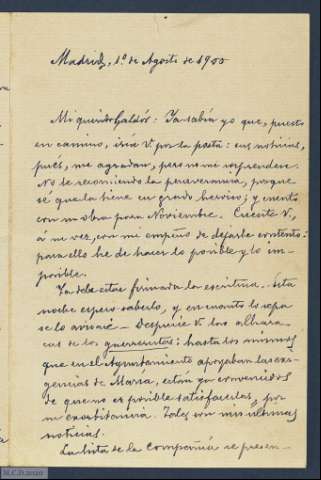 Madrid, 1º de Agosto de 1900
Mi querido Galdós: Ya sabía yo que, puesto
en camino, iría V. por la posta: sus noticias,
pués, me agradan, pero no me sorprenden.
No le recomiendo la perseverancia, porque
sé que la tiene en grado heróico; y cuento
con su obra para Noviembre. Cuente V,
á su vez, con mi empeño de dejarle contento:
para ello he de hacer lo posible y lo im-
posible.
Ya debe estar firmada la escritura. Esta
noche espero saberlo, y en cuanto lo sepa
se lo aviso. - Desprecie V. las alhara-
cas de los guerreristas: hasta los mismos
que en el Ayuntamiento apoyaban las exi-
gencias de Maria, están ya convencidos
de que no es posible satisfacerlas, por
su exorbitancia. Tales son mis últimas
noticias.
La lista de la Compañía se presen-
M.C.D. 2022